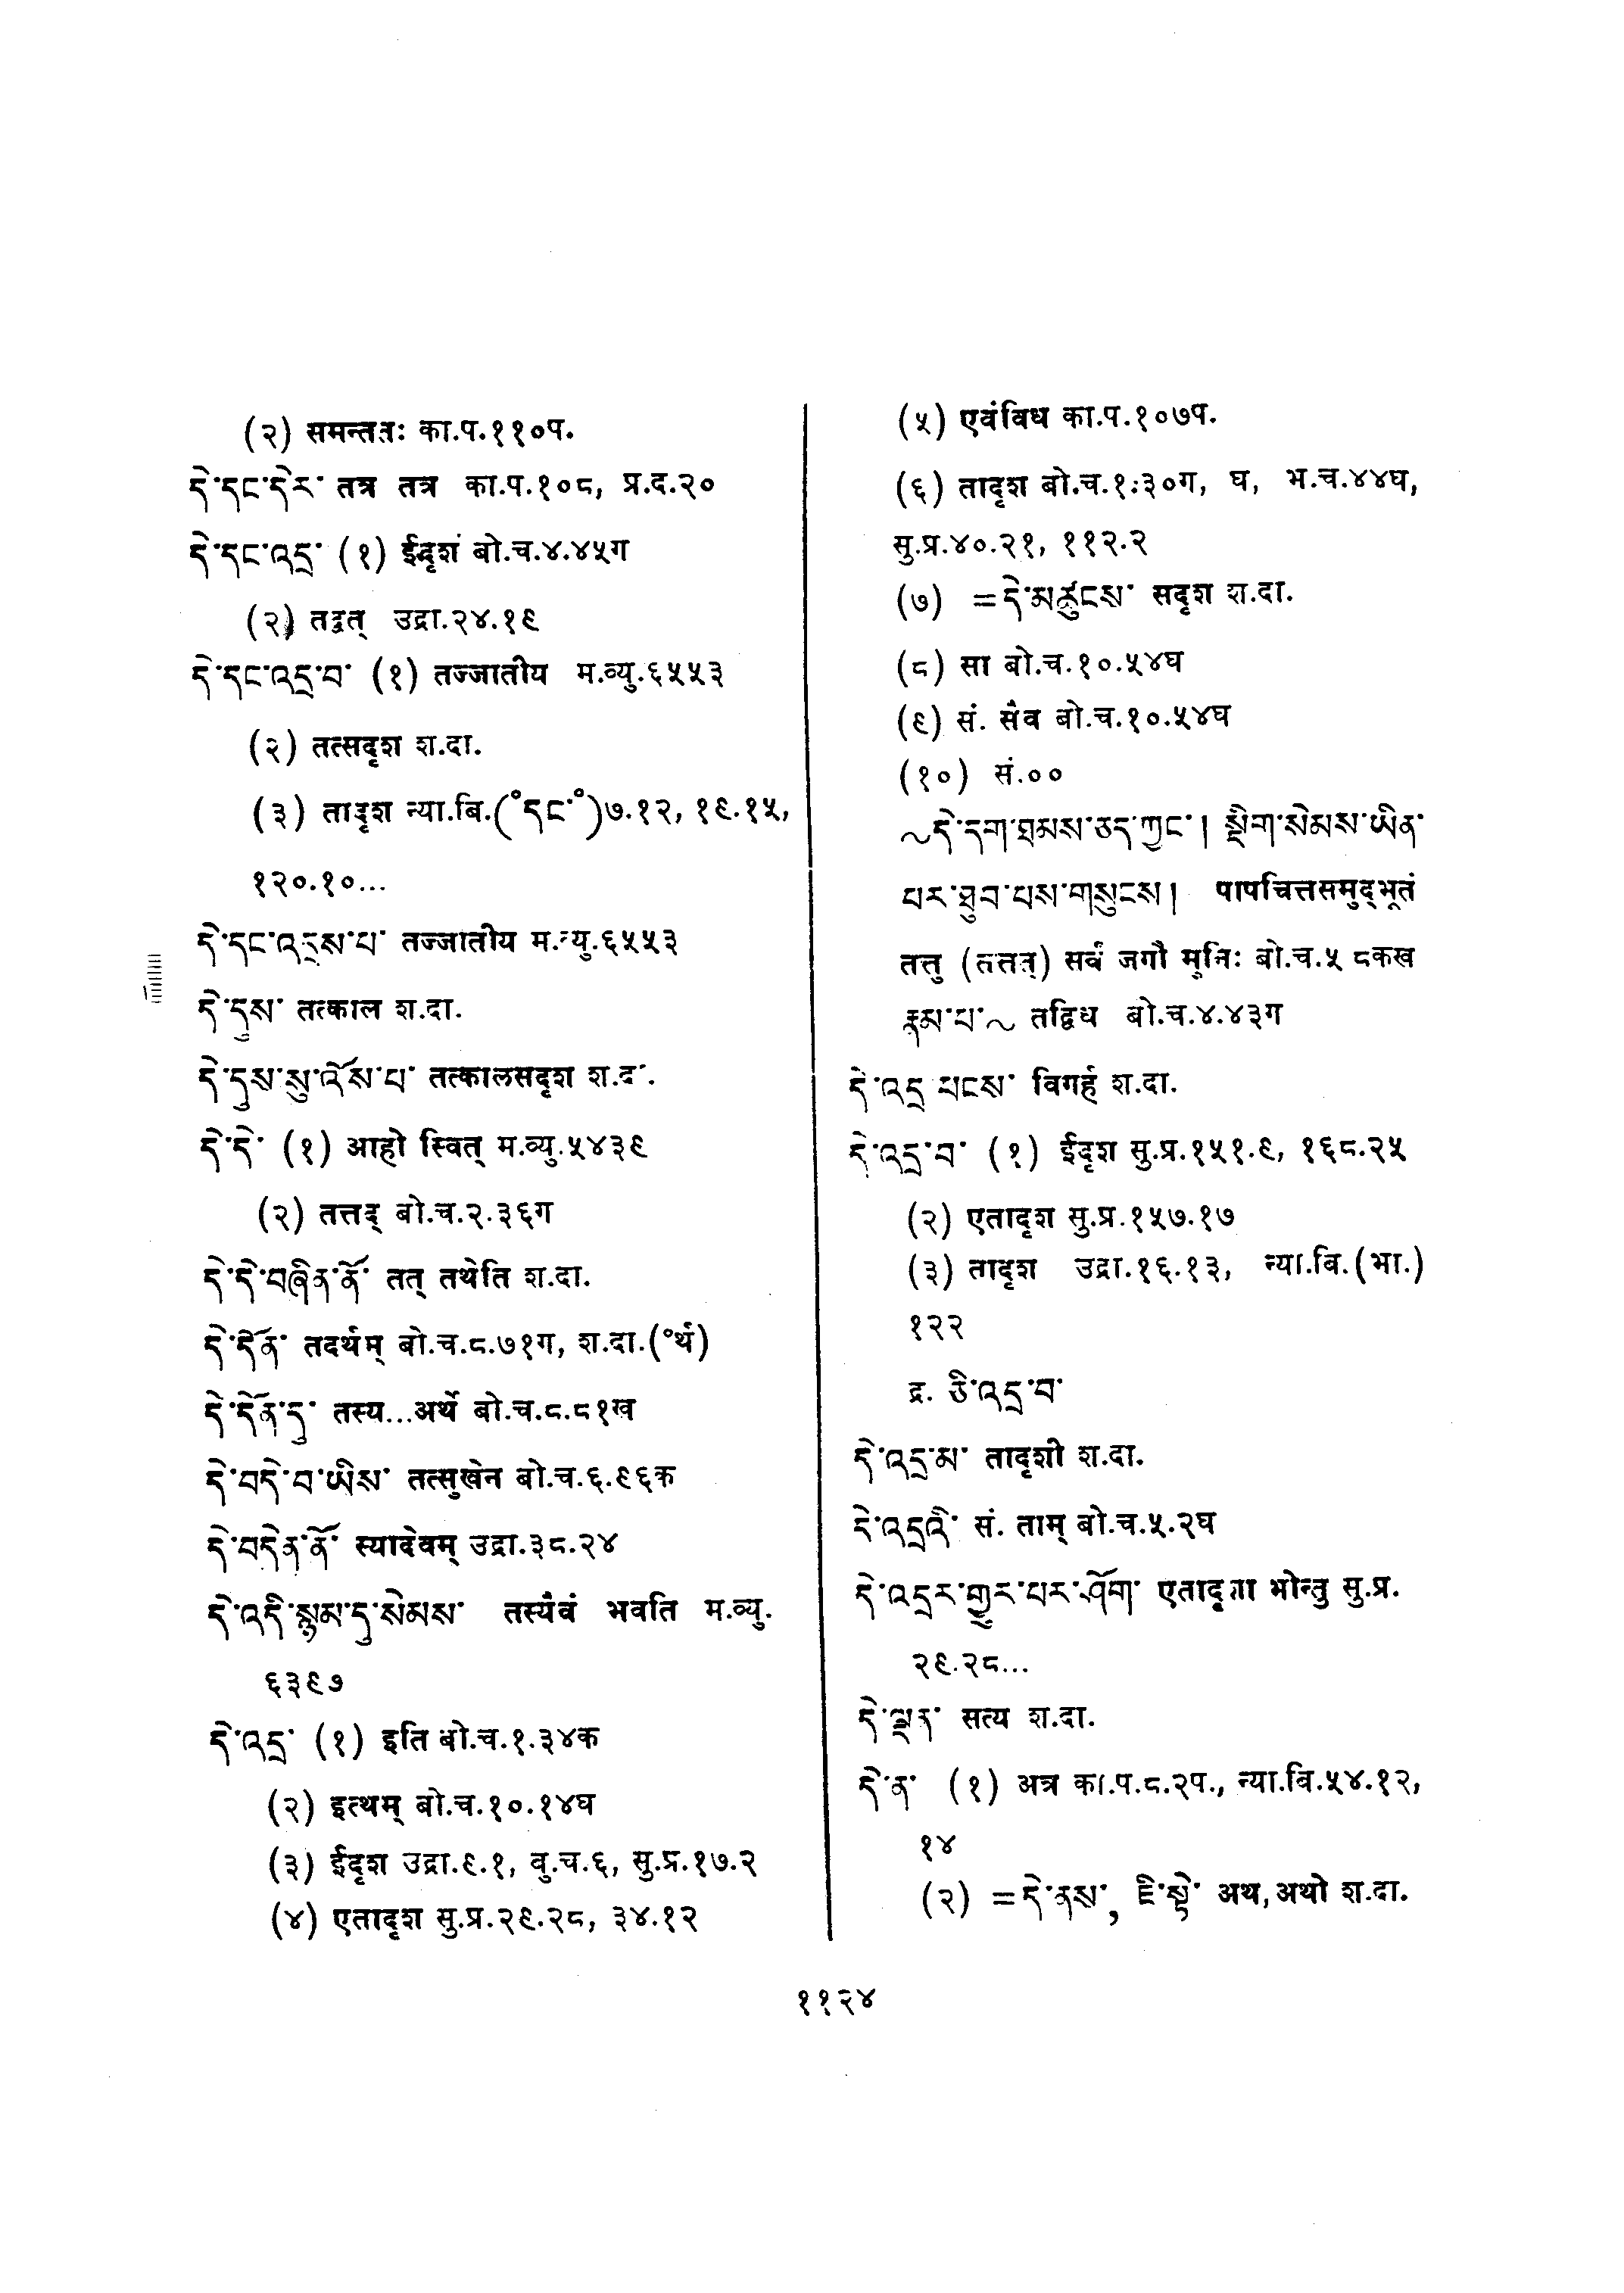 (२) समन्ततः का.प.११०प.
དེ་དང་དེར་ तत्र तत्र का.प.१०८, प्र.द.२०
དེ་དང་འདྲ་ (१) ईदृशं बो.च.४.४५ग
(२) तद्वत् उद्रा.२४.१९
དེ་དང་འདྲ་བ་ (१) तज्जातीय म.व्यु.६५५३
(२) तत्सदृश श.दा.
(३) तादृश न्या.बि.(°དང་°)७.१२, १९.१५,
१२०.१०...
དེ་དང་འདྲས་པ་ तज्जातीय म.व्यु.६५५३
དེ་དུས་ तत्काल श.दा.
དེ་དུས་སུ་འོས་པ་ तत्कालसदृश श.दा.
དེ་དེ་ (१) आहो स्वित् म.व्यु.५४३९
(२) तत्तद् बो.च.२.३६ग
དེ་དེ་བཞིན་ནོ་ तत् तथेति श.दा.
དེ་དོན་ तदर्थम् बो.च.८.७१ग, श.दा.(°र्थ)
དེ་དོན་དུ་ तस्य...अर्थे बो.च.८.८१ख
དེ་བདེ་བ་ཡིས་ तत्सुखेन बो.च.६.९६क
དེ་བདེན་ནོ་ स्यादेवम् उद्रा.३८.२४
དེ་འདི་སྙམ་དུ་སེམས་ तस्यैवं भवति म.व्यु.
६३९७
དེ་འདྲ་ (१) इति बो.च.१.३४क
(२) इत्थम् बो.च.१०.१४घ
(३) ईदृश उद्रा.९.१, वु.च.६, सु.प्र.१७.२
(४) एतादृश सु.प्र.२९.२८, ३४.१२
(५) एवंविध का.प.१०७प.
(६) तादृश बो.च.१.३०ग, घ, भ.च.४४घ,
सु.प्र.४०.२१, ११२.२
(७) =དེ་མཚུངས་ सदृश श.दा.
(८) सा बो.च.१०.५४घ
(९) सं. सैव बो.च.१०.५४घ
(१०) सं.००
~དེ་དག་ཐམས་ཅད་ཀྱང་། སྡིག་སེམས་ཡིན་
པར་ཐུབ་པས་གསུངས། पापचित्तसमुद्भूतं
तत्तु (तत्तत्) सर्वं जगौ मुनिः बो.च.५ ८कख
རྣམ་པ་~ तद्विध बो.च.४.४३ग
དེ་འདྲ་པངས་ विगर्ह श.दा.
དེ་འདྲ་བ་ (१) ईदृश सु.प्र.१५१.९, १६८.२५
(२) एतादृश सु.प्र.१५७.१७
(३) तादृश उद्रा.१६.१३, न्या.बि.(भा.)
१२२
द्र. ཅི་འདྲ་བ་
དེ་འདྲ་མ་ तादृशी श.दा.
དེ་འདྲའི་ सं. ताम् बो.च.५.२घ
དེ་འདྲར་གྱུར་པར་ཤོག་ एतादृशा भोन्तु सु.प्र.
२९.२८...
དེ་ལྟར་ सत्य श.दा.
དེ་ན་ (१) अत्र का.प.८.२प., न्या.बि.५४.१२,
१४
(२) =དེ་ནས་, ཇི་སྟེ་ अथ,अथो श.दा.
११२४